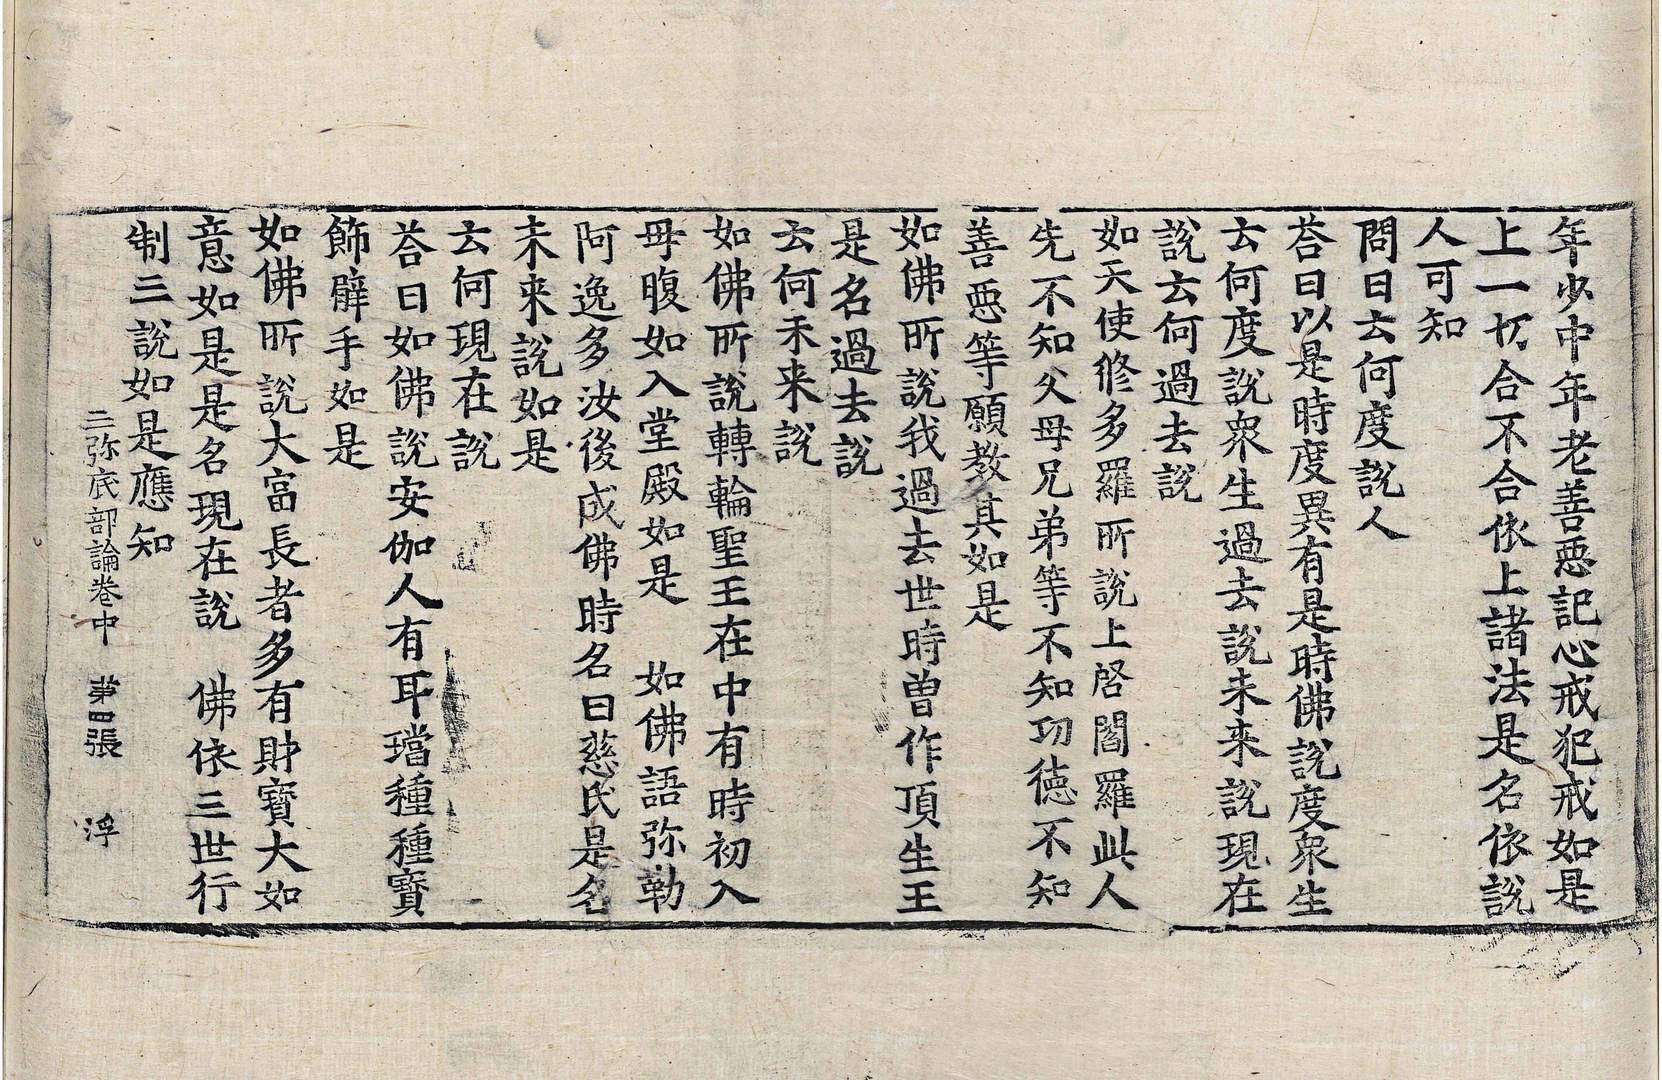 年少中年老善惡記心戒犯戒如是
上一切合不合依上諸法是名依說
人可知
問曰云何度說人
荅曰以是時度異有是時佛說度衆生
云何度說衆生過去說未来說現在
說云何過去說
如天使修多羅所說上啓閻羅此人
先不知父母兄弟等不知功德不知
善惡等願教其如是
如佛所說我過去世時曽作頂生王
是名過去說
云何未来說
如佛所說轉輪聖王在中有時初入
母腹如入堂殿如是　如佛語弥勒
阿逸多汝後成佛時名曰慈氏是名
未来說如是
云何現在說
荅曰如佛說安伽人有耳璫種種寳
飾臂手如是
如佛所說大富長者多有財寳大如
意如是是名現在說　佛依三世行
制三說如是應知
三弥底部論卷中　第四張　浮